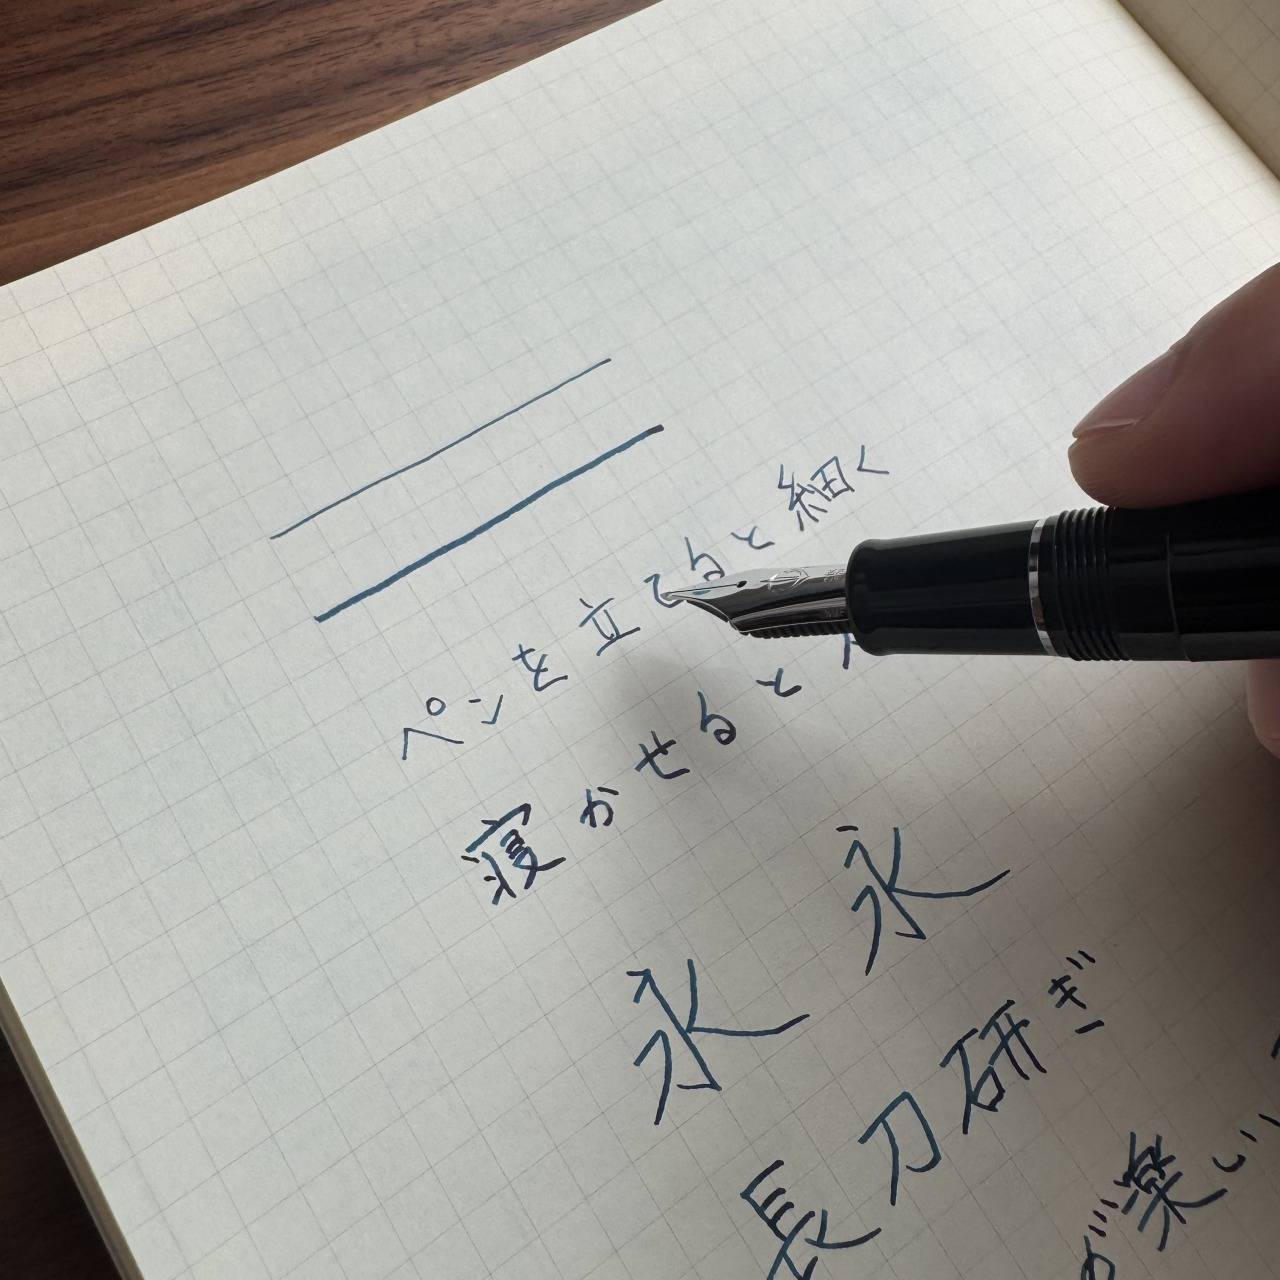 ペンを立てると細く
寝かせると
永 永
長刀研ぎ
が楽しい